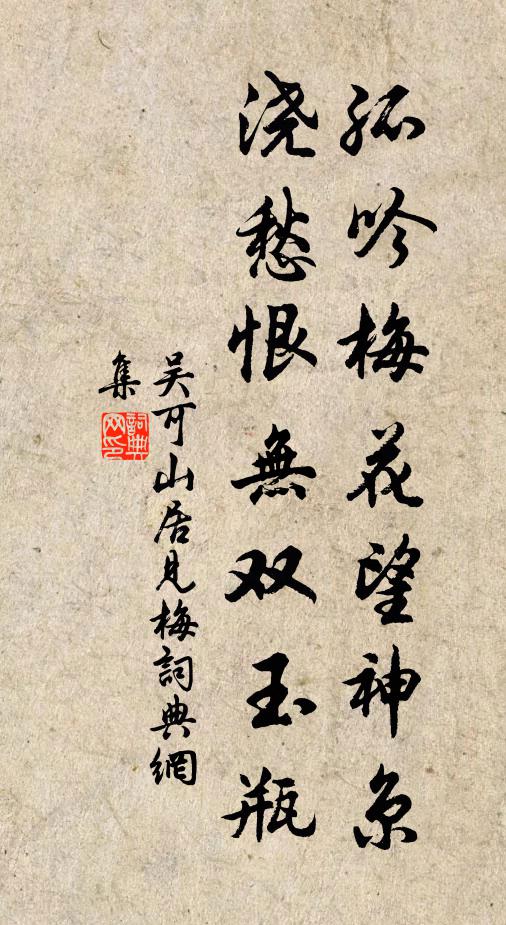 孤吟梅花望神京
浇愁恨無双玉瓶
吴可山居見梅詞典網
集
詞典网印